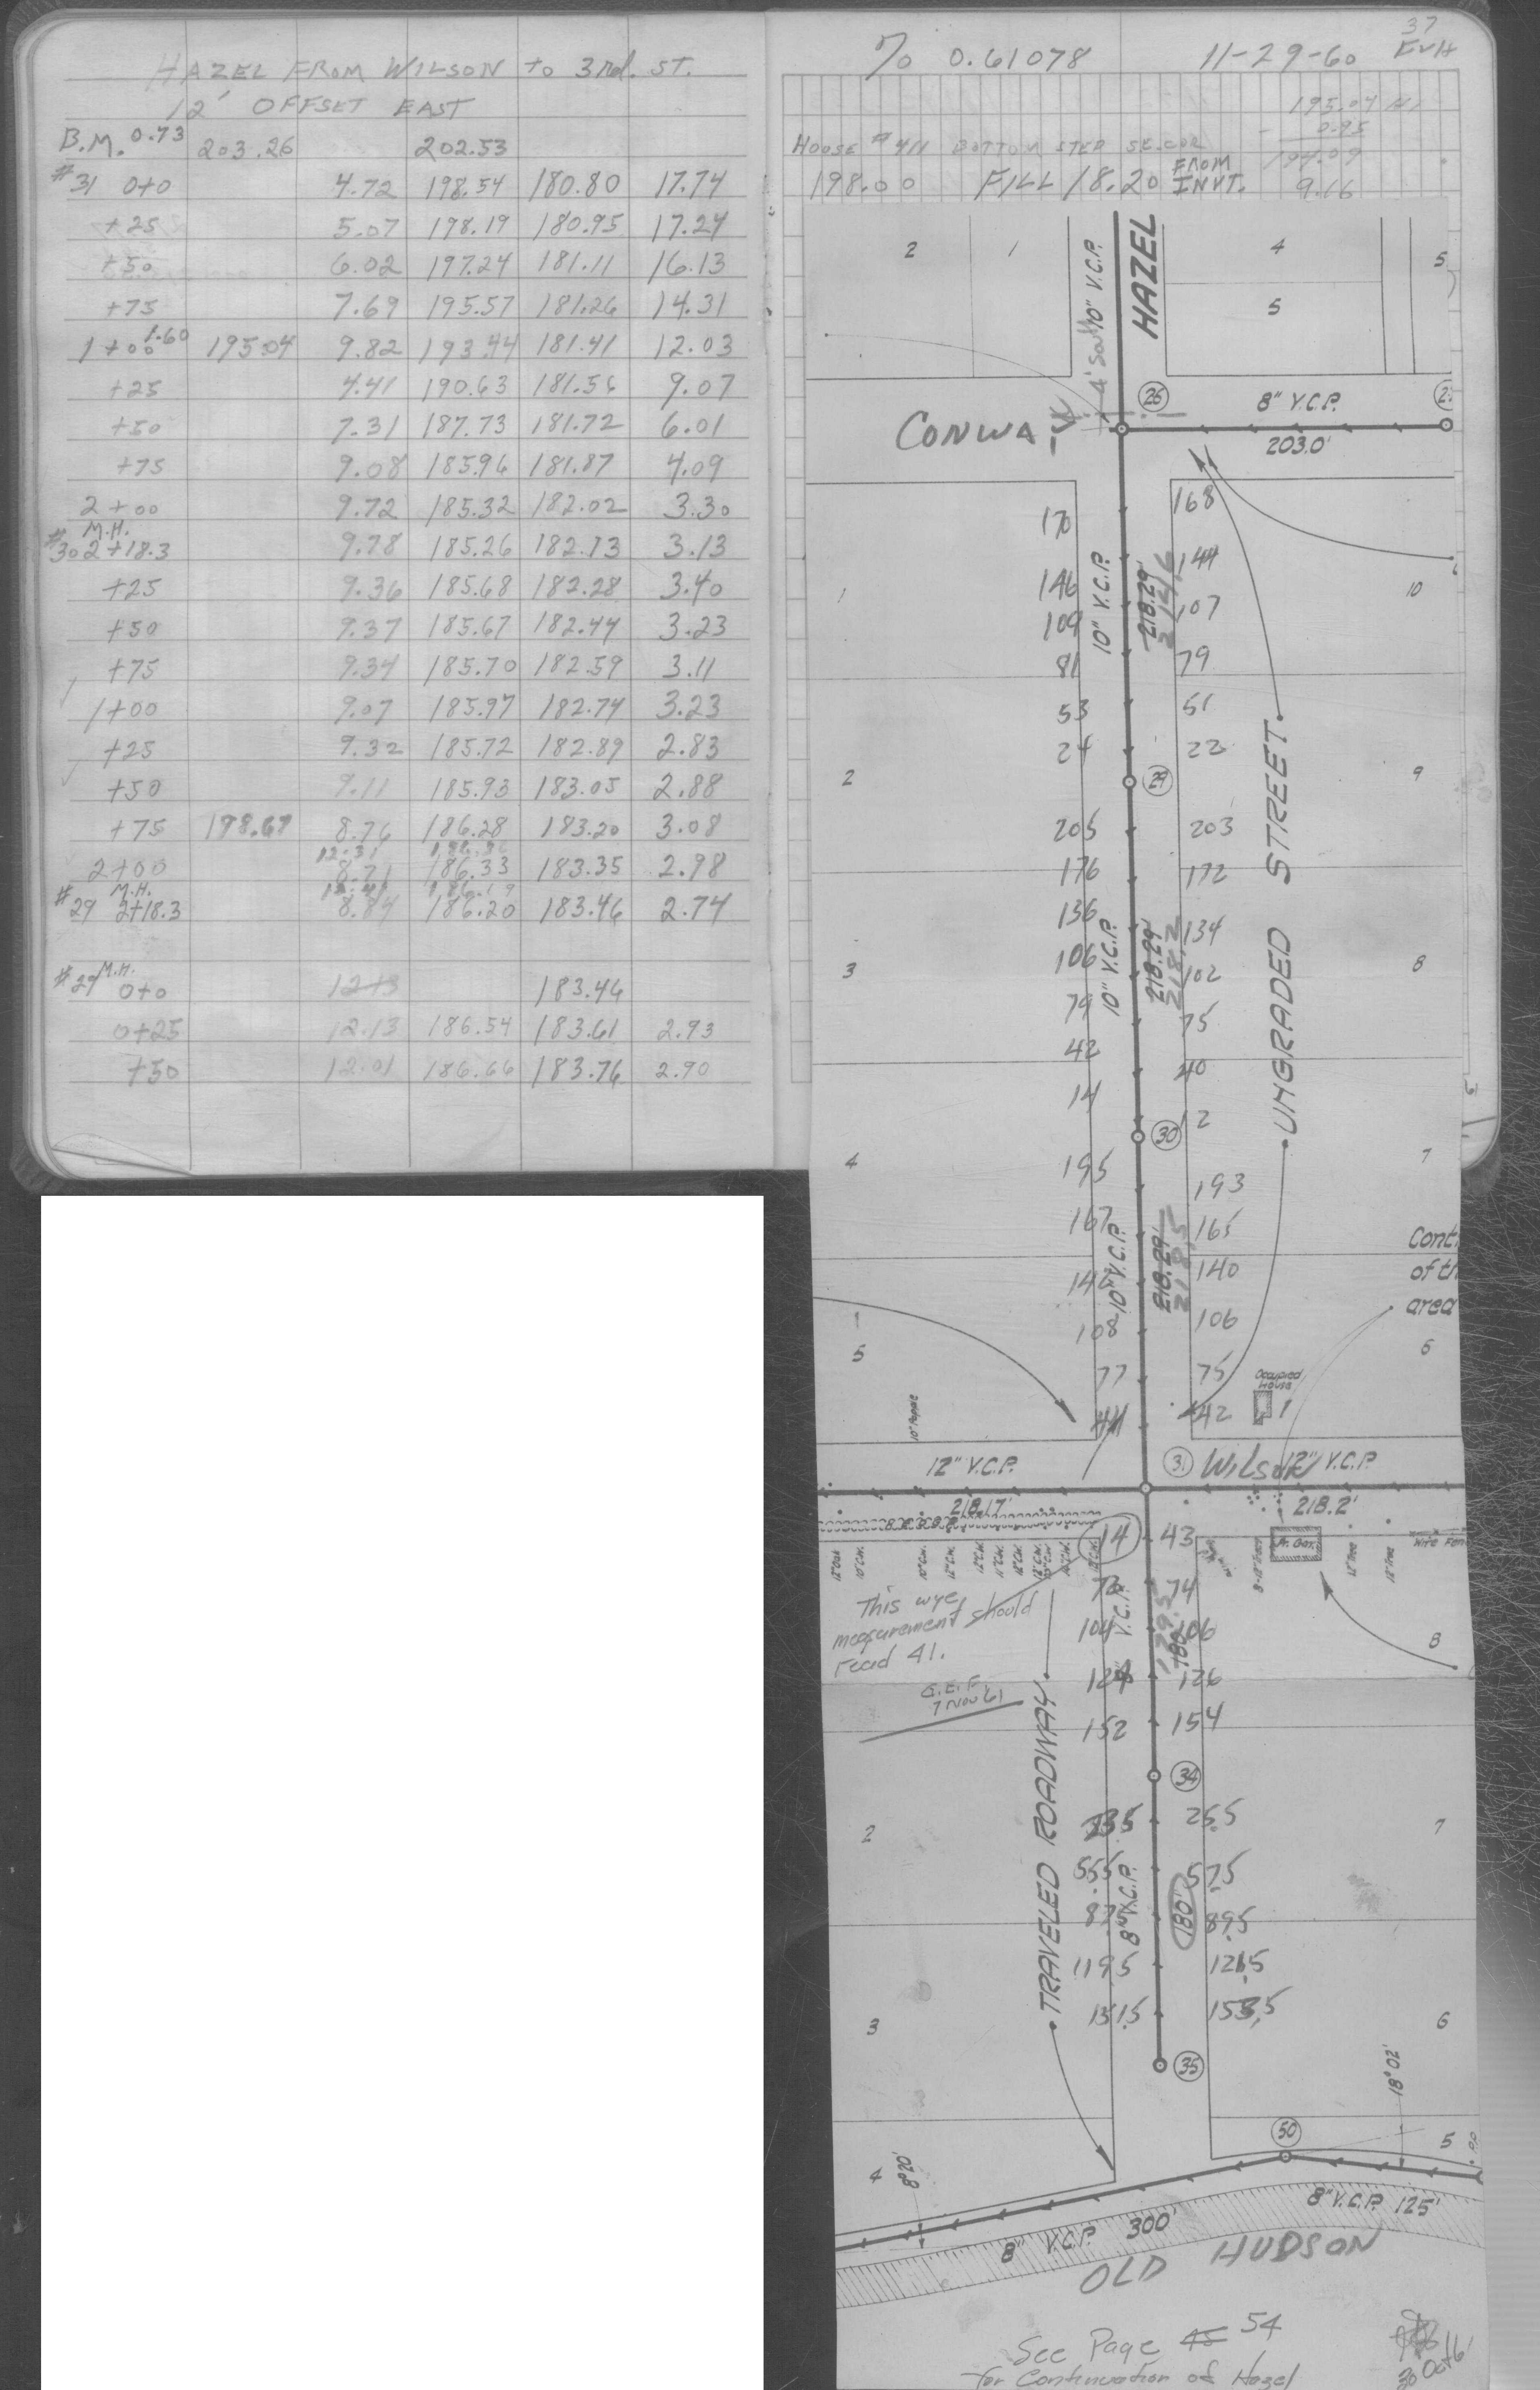 HAZEL FROM WILSON to 3rd. ST.
12' OFFSET EAST
B.M. 0.73 203.26 202.53
#31 0+0 4.72 198.54 180.80 17.74
+25 5.07 198.19 180.95 17.24
+50 6.02 197.24 181.11 16.13
+75 7.69 195.57 181.26 14.31
1+00 1.60 195.04 9.82 193.44 181.41 12.03
+25 4.41 190.63 181.56 9.07
+50 7.31 187.73 181.72 6.01
+75 9.08 185.96 181.87 4.09
2+00 9.72 185.32 182.02 3.30
M.H.
#30 2+18.3 9.78 185.26 182.13 3.13
+25 9.36 185.68 182.28 3.40
+50 9.37 185.67 182.44 3.23
+75 9.34 185.70 182.59 3.11
1+00 9.07 185.97 182.74 3.23
+25 9.32 185.72 182.89 2.83
+50 9.11 185.93 183.05 2.88
+75 198.67 8.76 186.28 183.20 3.08
12.31
2+00 8.71 186.33 183.35 2.98
M.H.
#29 2+18.3 8.84 186.20 183.46 2.74
M.H.
#29 0+0 12+3 183.46
0+25 12.13 186.54 183.61 2.93
+50 12.01 186.66 183.76 2.90
37
% 0.61078 11-29-60 EVH
195.04 HI
- 0.95
HOOSE #411 BOTTOM STEP SE.COR 194.09
198.00 FILL 18.20 FROM INVT. 9.16
2 1 4 5
5
10" V.C.P.
HAZEL
26
8" V.C.P.
203.0'
CONWAY
170 168
146 144
109 107
81 79
53 51
24 22
10" V.C.P.
218.29'
1 10
29
2 9
205 203
176 172
136 134
106 102
79 75
42 40
14 12
10" V.C.P.
218.29'
218.2
3 8
UNGRADED STREET
30
4 7
195 193
167 165
142 140
108 106
77 75
44 42
10" V.C.P.
218.29'
218.5
Cont.
of th
area
1
5 6
Occupied House
1
10" Popple
12" V.C.P.
31
Wilson
12" V.C.P.
218.17'
218.2'
14 43
72 74
104 106
124 126
152 154
V.C.P.
180'
12"Oak 10"C.W. 10"C.W. 12"C.W. 12"C.W. 11"C.W. 12"C.W. 12"C.W. 10"C.W. 10"C.W. 12"C.W.
Fr. Gar.
12" Tree
12" Tree
Wire Fen
This wye
measurement should
read 41.
G.E.F.
7 Nov 61
8
34
TRAVELED ROADWAY
235 255
555 575
875 895
1195 1215
1515 1535
8" V.C.P.
180'
2 7
3 6
35
18°02'
50
5
P.P.
4
8°20'
8" V.C.P. 300'
8" V.C.P. 125'
OLD HUDSON
See Page 45 54
for Continuation of Hazel
30 Oct 61